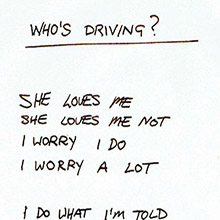 WHO'S DRIVING?
SHE LOVES ME
SHE LOVES ME NOT
I WORRY I DO
I WORRY A LOT
I DO WHAT I'M TOLD